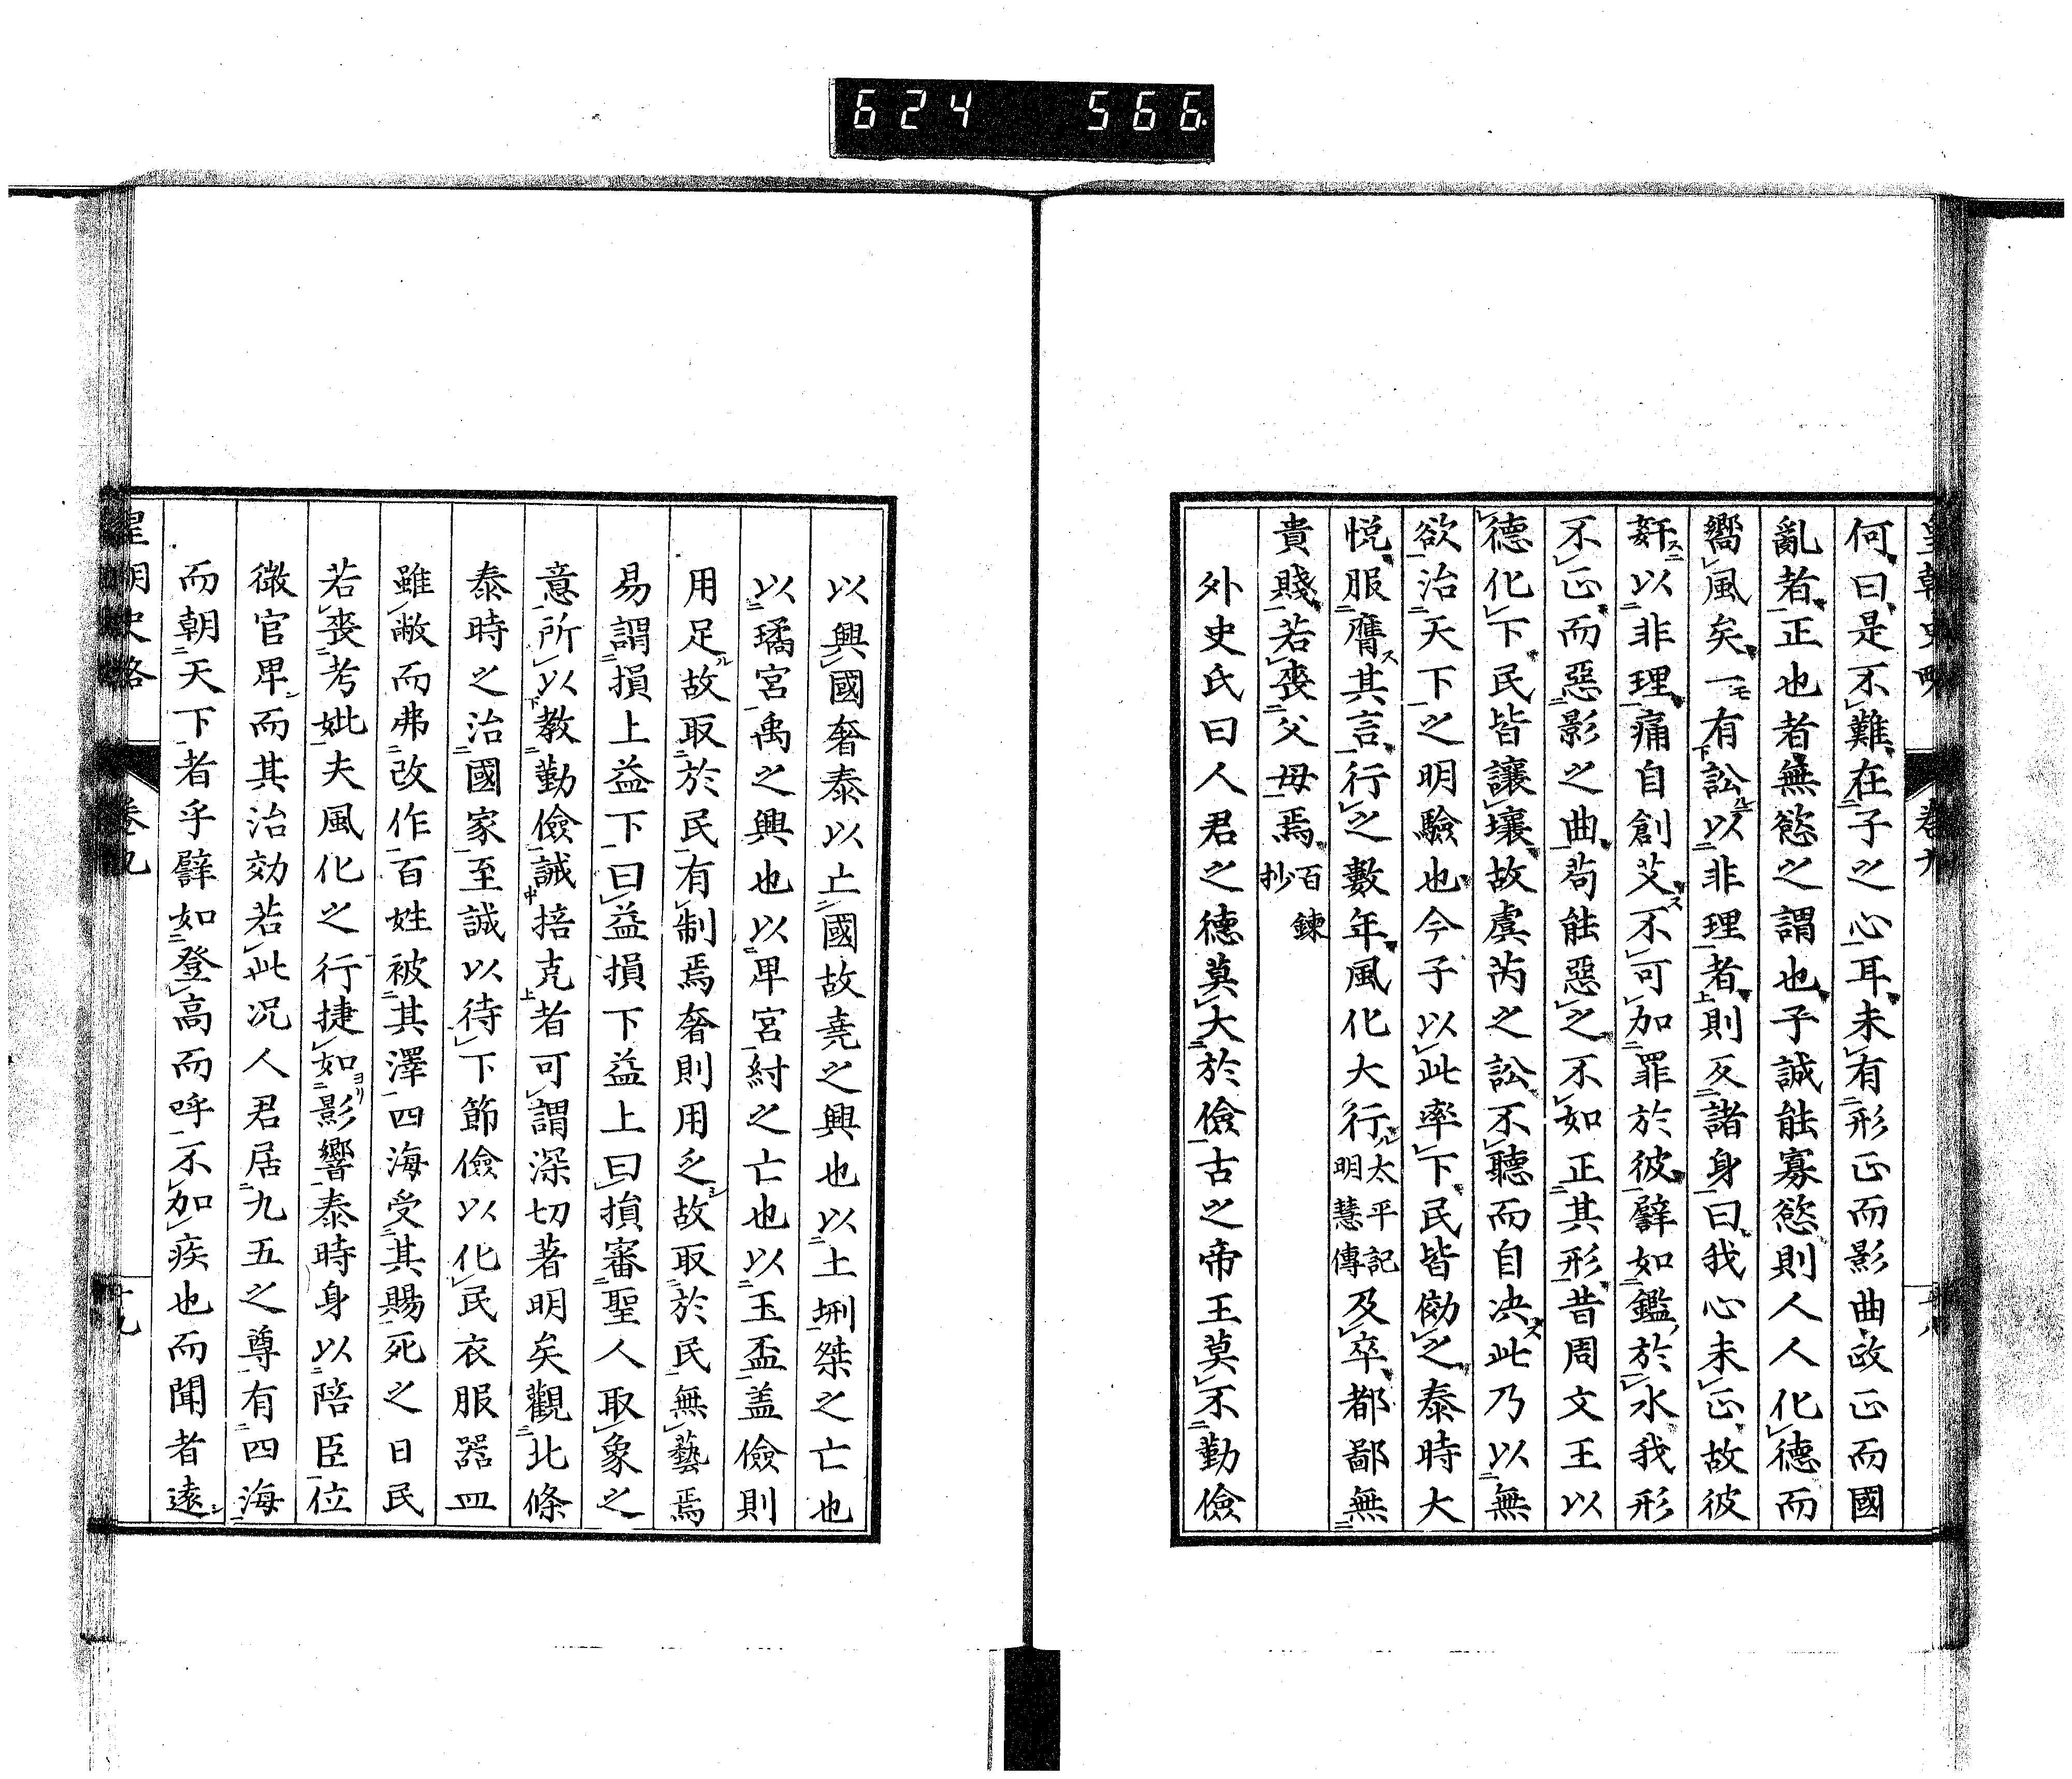 624 566
皇朝史略 卷九 十八
何曰是不難在子之心耳未有形正而影曲政正而國
亂者正也者無慾之謂也子誠能寡慾則人人化德而
嚮風矣一有訟以非理者則反諸身曰我心未正故彼
姧以非理痛自創艾不可加罪於彼譬如鑑於水我形
不正而惡影之曲苟能惡之不如正其形昔周文王以
德化下民皆讓壤故虞芮之訟不聽而自決此乃以無
欲治天下之明驗也今子以此率下民皆傚之泰時大
悅服膺其言行之數年風化大行太平記明慧傳及卒都鄙無
貴賤若喪父母焉百鍊抄
外史氏曰人君之德莫大於儉古之帝王莫不勤儉
以興國奢泰以亡國故堯之興也以土堦桀之亡也
以璚宮禹之興也以卑宮紂之亡也以玉盃蓋儉則
用足故取於民有制焉奢則用乏故取於民無藝焉
易謂損上益下曰益損下益上曰損審聖人取象之
意所以教勤儉誡掊克者可謂深切著明矣觀北條
泰時之治國家至誠以待下節儉以化民衣服器皿
雖敝而弗改作百姓被其澤四海受其賜死之日民
若喪考妣夫風化之行捷如影響泰時身以陪臣位
微官卑而其治効若此況人君居九五之尊有四海
而朝天下者乎譬如登高而呼不加疾也而聞者遠
皇朝史略 卷九 十九